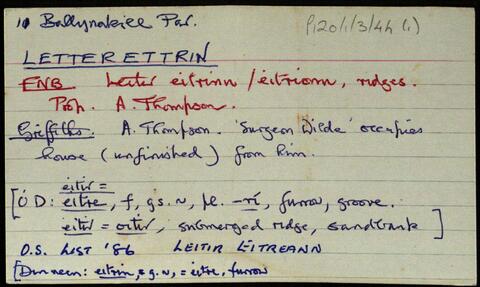 10 Ballynakill Par. P120/1/3/4h (1)
LETTER ETTRIN
FNB Leitir eitrinn / éitrionn, ridges.
Prop. A. Thompson.
Griffiths. A. Thompson. 'Surgeon Wilde' occupies
house (unfinished) from him.
eitir =
[Ó D: eitre, f, gs. ~, pl. -rí, furrow, groove.
eitir = oitir, submerged ridge, sandbank ]
O.S. LIST '86 LEITIR EITREANN
[Dinneen: eitrin, g. ~, = eitre, furrow